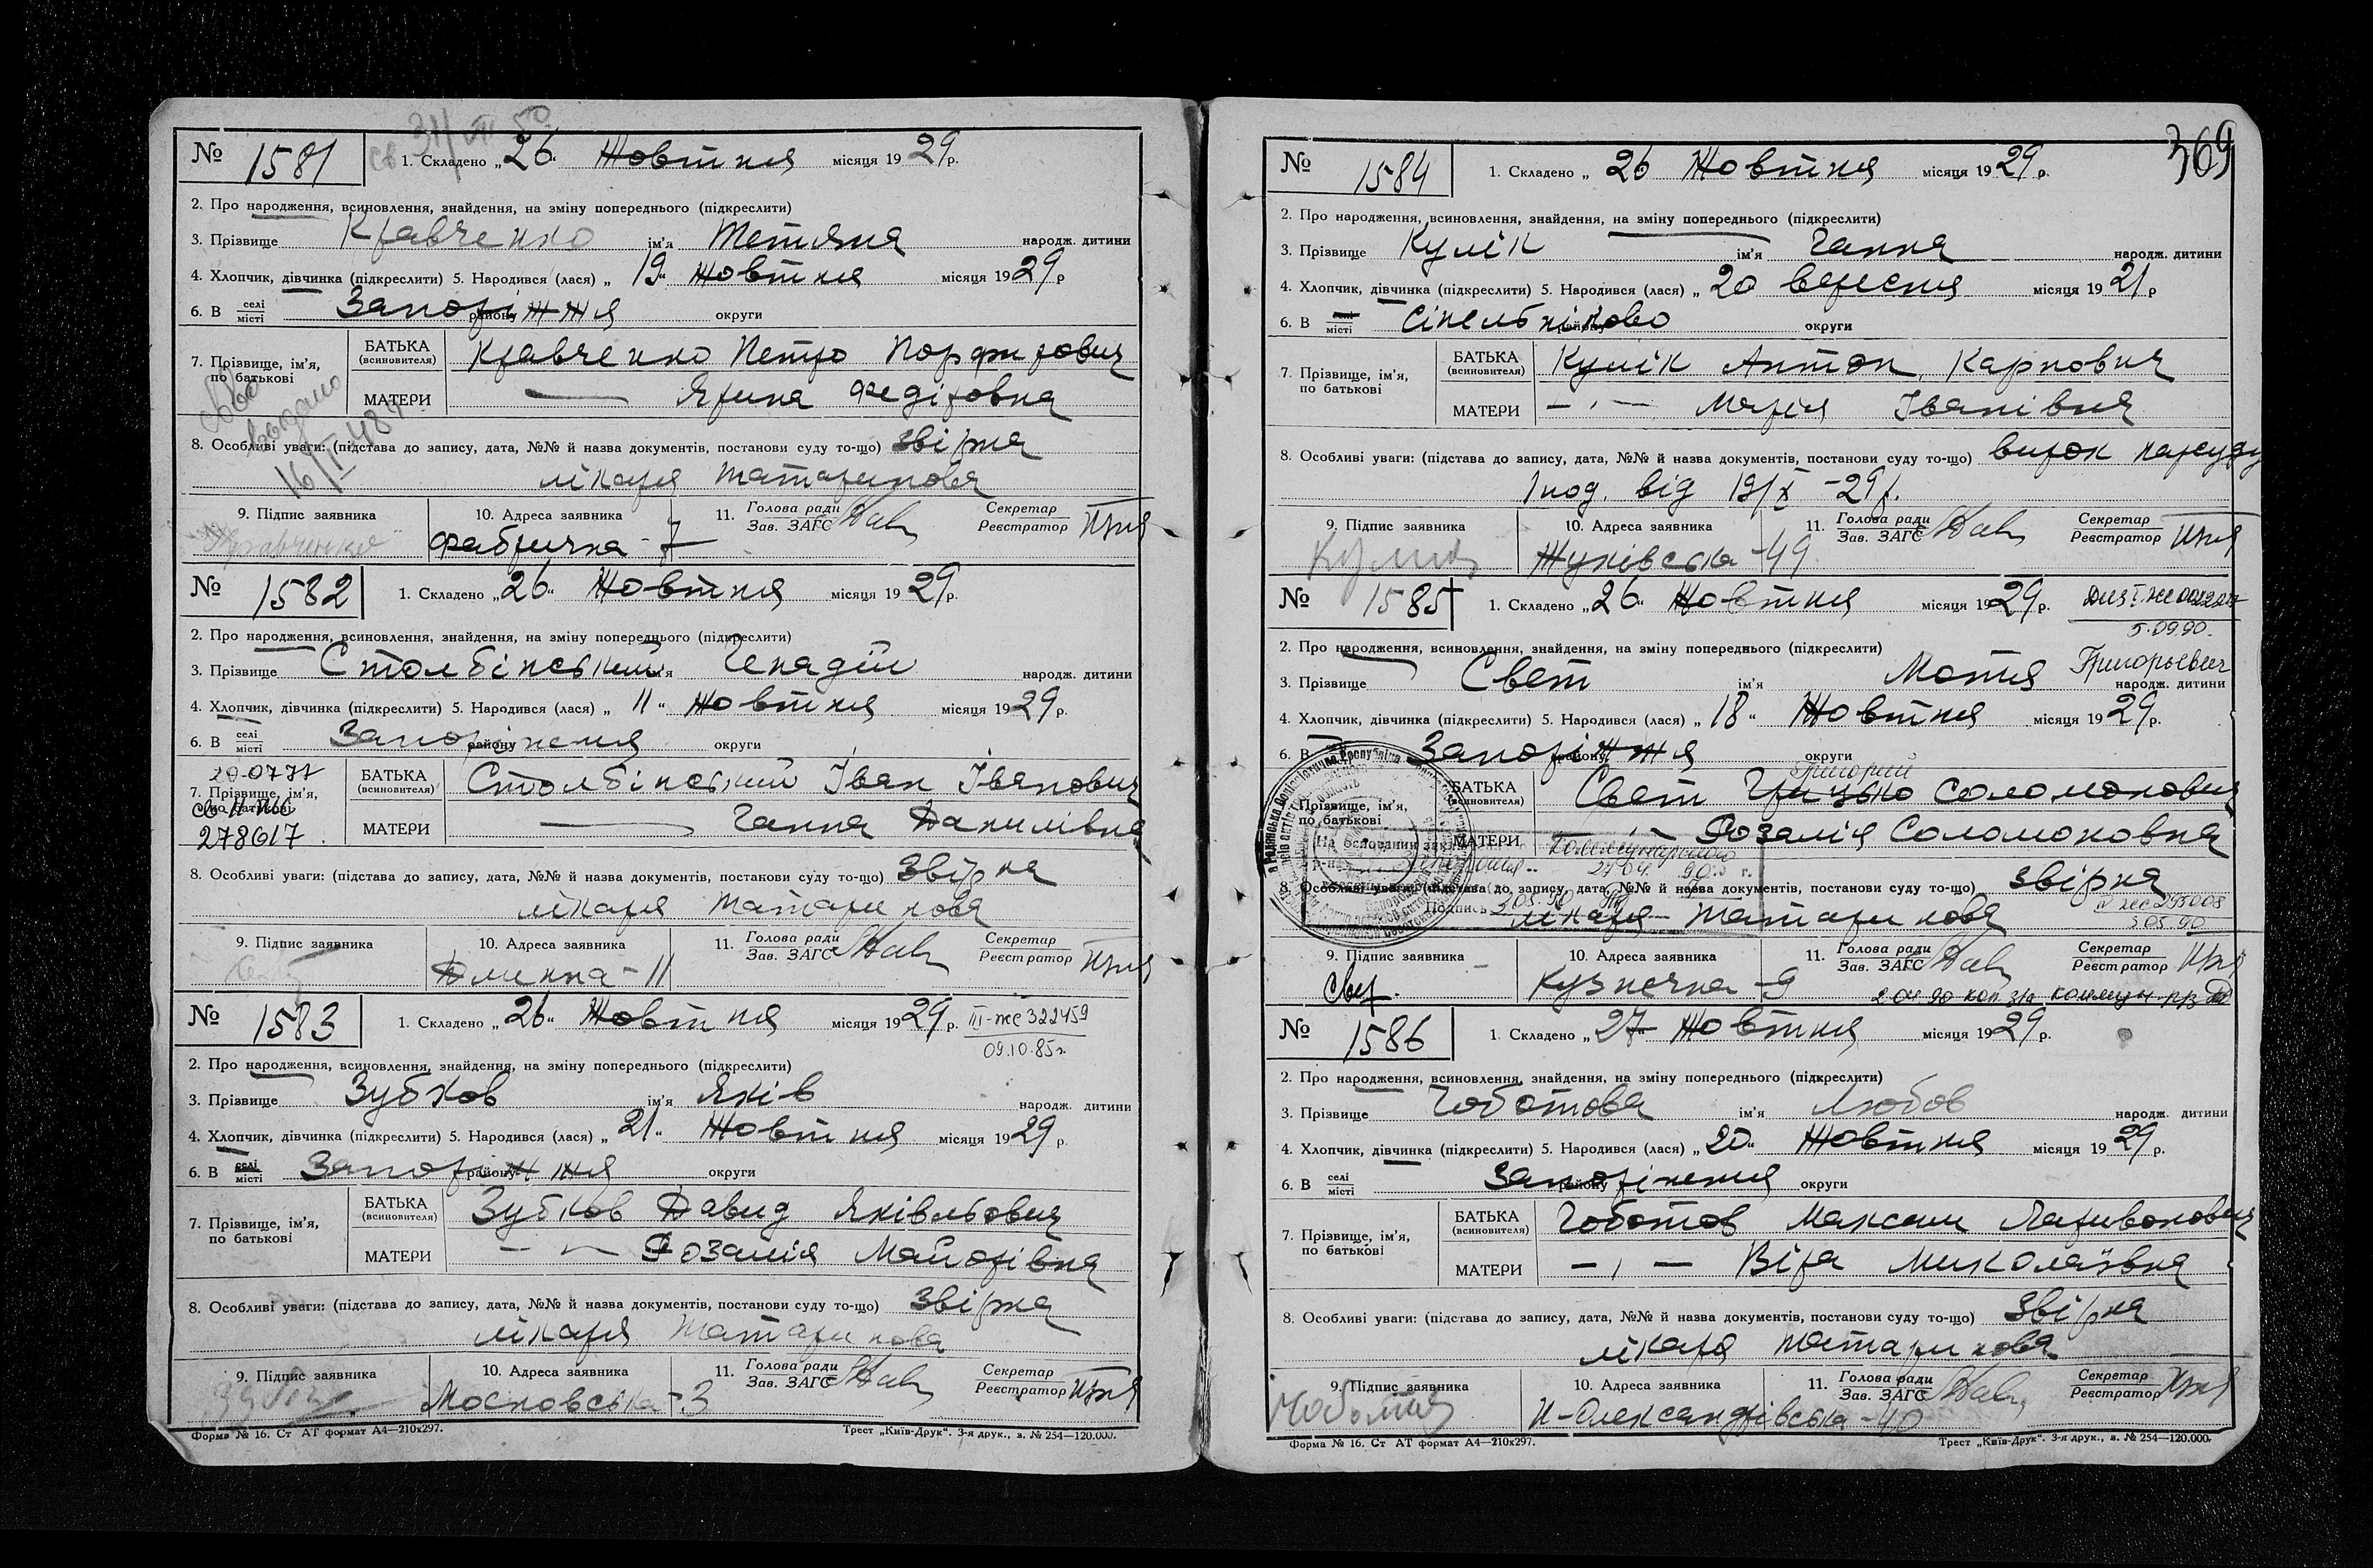 № 1581 1. Складено „26“ Жовтня місяця 1929 р.
2. Про народження, всиновлення, знайдення, на зміну попереднього (підкреслити)
3. Прізвище Кравченко ім’я Тетяна народж. дитини
4. Хлопчик, дівчинка (підкреслити) 5. Народився (лася) „19“ Жовтня місяця 1929 р
6. В селі місті Запоріжжя району округи
7. Прізвище, ім’я, по батькові
БАТЬКА (всиновителя) Кравченко Петро Порфирович
МАТЕРИ — Ярина Федіровна
8. Особливі уваги: (підстава до запису, дата, №№ й назва документів, постанови суду то-що) звірка
лікаря Татаринова
9. Підпис заявника 10. Адреса заявника 11. Голова ради Зав. ЗАГС Секретар Реєстратор
Фабрична - 7
№ 1582 1. Складено „26“ Жовтня місяця 1929 р.
2. Про народження, всиновлення, знайдення, на зміну попереднього (підкреслити)
3. Прізвище Столбінський ім’я Генадій народж. дитини
4. Хлопчик, дівчинка (підкреслити) 5. Народився (лася) „11“ Жовтня місяця 1929 р.
6. В селі місті Запоріжжя району округи
20-07-77
7. Прізвище, ім’я, по батькові
278617
БАТЬКА (всиновителя) Столбінський Іван Іванович
МАТЕРИ — Ганна Данилівна
8. Особливі уваги: (підстава до запису, дата, №№ й назва документів, постанови суду то-що) звірка
лікаря Татаринова
9. Підпис заявника 10. Адреса заявника 11. Голова ради Зав. ЗАГС Секретар Реєстратор
№ 1583 1. Складено „26“ Жовтня місяця 1929 р. III-ЖС 322459
09.10.85г.
2. Про народження, всиновлення, знайдення, на зміну попереднього (підкреслити)
3. Прізвище Зубков ім’я Яків народж. дитини
4. Хлопчик, дівчинка (підкреслити) 5. Народився (лася) „21“ Жовтня місяця 1929 р.
6. В селі місті Запоріжжя району округи
7. Прізвище, ім’я, по батькові
БАТЬКА (всиновителя) Зубков Давид Яківльович
МАТЕРИ — Розалія Майорівна
8. Особливі уваги: (підстава до запису, дата, №№ й назва документів, постанови суду то-що) звірка
лікаря Татаринова
9. Підпис заявника 10. Адреса заявника 11. Голова ради Зав. ЗАГС Секретар Реєстратор
Московська - 3
Форма № 16. Ст АТ формат А4—210х297. Трест „Київ-Друк“. 3-я друк., з. № 254—120.000.
369
№ 1584 1. Складено „26 Жовтня місяця 1929 р.
2. Про народження, всиновлення, знайдення, на зміну попереднього (підкреслити)
3. Прізвище Кулік ім’я Ганна народж. дитини
4. Хлопчик, дівчинка (підкреслити) 5. Народився (лася) „20 вересня місяця 1921 р
6. В селі місті Сінельніково району округи
7. Прізвище, ім’я, по батькові
БАТЬКА (всиновителя) Кулік Антон Карпович
МАТЕРИ — Марія Іванівна
8. Особливі уваги: (підстава до запису, дата, №№ й назва документів, постанови суду то-що) вирок нарсуду
від 19/X -29р.
9. Підпис заявника 10. Адреса заявника 11. Голова ради Зав. ЗАГС Секретар Реєстратор
Жуківська - 49
№ 1585 1. Складено „26“ Жовтня місяця 1929 р.
5.09.90.
2. Про народження, всиновлення, знайдення, на зміну попереднього (підкреслити)
3. Прізвище Свет ім’я Мотя Григорьевич народж. дитини
4. Хлопчик, дівчинка (підкреслити) 5. Народився (лася) „18“ Жовтня місяця 1929 р.
6. В Запоріжжя району округи
Прізвище, ім’я, по батькові
Григорий
БАТЬКА (всиновителя) Свет Грицько Соломонович
МАТЕРИ Розалія Соломоновна
8. Особливі уваги: (підстава до запису, дата, №№ й назва документів, постанови суду то-що) звірка
лікаря Татаринова
3 05.90
9. Підпис заявника 10. Адреса заявника 11. Голова ради Зав. ЗАГС Секретар Реєстратор
Свет. Кузнечна - 9
№ 1586 1. Складено „27 Жовтня місяця 1929 р.
2. Про народження, всиновлення, знайдення, на зміну попереднього (підкреслити)
3. Прізвище Чоботова ім’я Любов народж. дитини
4. Хлопчик, дівчинка (підкреслити) 5. Народився (лася) „20“ Жовтня місяця 1929 р.
6. В селі місті Запоріжжя району округи
7. Прізвище, ім’я, по батькові
БАТЬКА (всиновителя) Чоботов Максим Ларивонович
МАТЕРИ — Віра Миколаївна
8. Особливі уваги: (підстава до запису, дата, №№ й назва документів, постанови суду то-що) звірка
лікаря Татаринова
9. Підпис заявника 10. Адреса заявника 11. Голова ради Зав. ЗАГС Секретар Реєстратор
Н-Олександрівська - 40
Форма № 16. Ст АТ формат А4—210х297. Трест „Київ-Друк“. 3-я друк., з. № 254—120.000.